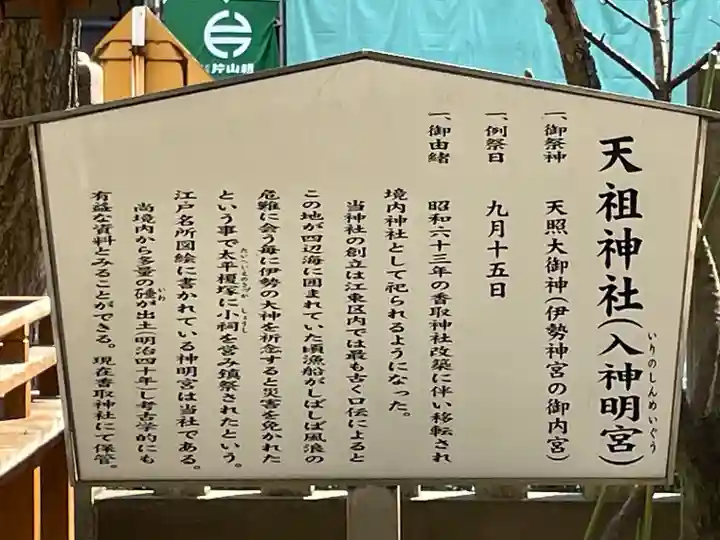 天祖神社(入神明宮)
いりのしんめいぐう
一、御祭神 天照大御神(伊勢神宮の御内宮)
一、例祭日 九月十五日
一、御由緒 昭和六十三年の香取神社改築に伴い移転され
境内神社として祀られるようになった。
当神社の創立は江東区内では最も古く口伝によると
この地が四辺海に囲まれていた頃漁船がしばしば風浪の
危難に会う毎に伊勢の大神を祈念すると災害を免かれた
という事で太平榎塚に小祠を営み鎮祭されたという。
たいへいえのきづか しょうし
江戸名所図絵に書かれている神明宮は当社である。
尚境内から多量の硾が出土(明治四十年)し考古学的にも
いわ
有益な資料とみることができる。現在香取神社にて保管。
片山頼